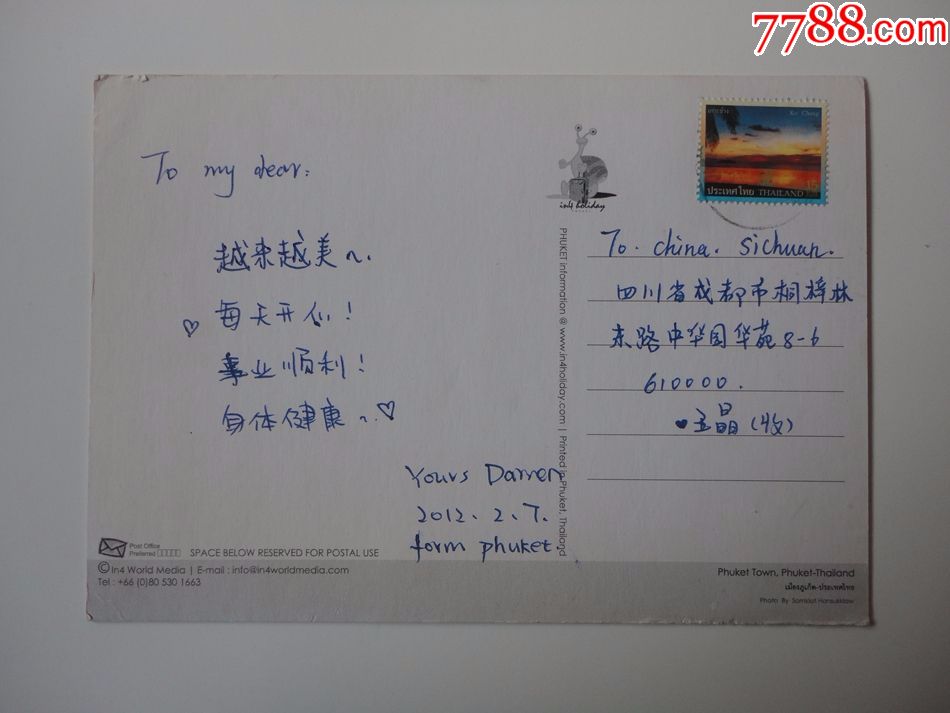 7788.com
เกาะช้าง Koh Chang
15
ประเทศไทย THAILAND
in4 holiday
To my dear:
越来越美~.
每天开心!
事业顺利!
身体健康~.
Yours Darren
2012. 2. 7.
form phuket.
To. china. sichuan.
四川省成都市桐梓林
东路中华园华苑8-6
610000.
王晶(收)
PHUKET information @ www.in4holiday.com | Printed in Phuket, Thailand
Post Office
Preferred
SPACE BELOW RESERVED FOR POSTAL USE
©In4 World Media | E-mail : info@in4worldmedia.com
Tel : +66 (0)80 530 1663
Phuket Town, Phuket-Thailand
เมืองภูเก็ต-ประเทศไทย
Photo By Somkiat Hansukklaw